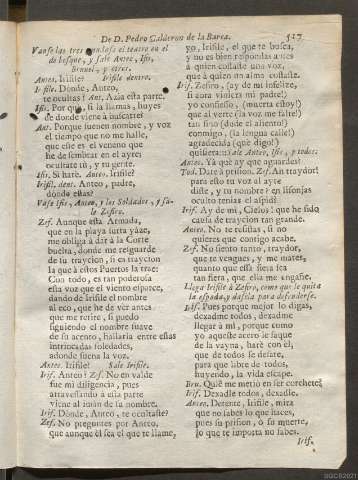 De D. Pedro Calderon de la Barca. 527
Vanse las tres, mudase el teatro en el
de bosque, y sale Anteo, Isis,
Brunel, y otros.
Anteo. Irifile! Irifile dentro.
Irifile. Donde, Anteo,
te ocultas? Ant. Azia esta parte.
Isis. Por que, si la llamas, huyes
de donde viene à buscarte?
Ant. Porque suenen nombre, y voz
el tiempo que no me halle,
que esse es el veneno que
he de sembrar en el ayre:
ocultate tù, y tu gente.
Isis. Si harè. Anteo. Irifile?
Irifil. dent. Anteo, padre,
dònde estàs?
Vase Isis, Anteo, y los Soldados, y sale
Zefiro.
Zef. Aunque essa Armada,
que en la playa surta yaze,
me obliga à dar à la Corte
buelta, donde me resguarde
de su traycion, si es traycion
la que à estos Puertos la trae:
Con todo, es tan poderosa
essa voz que el viento esparce,
dando de Irifile el nombre
al eco, que he de ver antes
que me retire, si puedo
siguiendo el nombre suave
de su acento, hallarla entre essas
intrincadas soledades,
adonde suena la voz.
Anteo. Irifile! Sale Irifile.
Irif. Anteo! Zef. No en valde
fue mi diligencia, pues
atravessando à esta parte
viene al imàn de su nombre.
Irif. Dònde, Anteo, te ocultaste?
Zef. No preguntes por Anteo,
que aunque èl sea el que te llame,
yo, Irifile, el que te busca,
y no es bien respondas antes
à quien costaste una voz,
que à quien un alma costaste.
Irif. Zefiro, (ay de mi infelize,
si aora viniera mi padre!)
yo confiesso, (muerta estoy!)
que al verte (la voz me falta!)
tan fino (dude el aliento!)
conmigo, (la lengua calle!)
agradecida (què digo!)
quisiera: Sale Anteo, Isis, y todos.
Anteo. Yà què ay que aguardes?
Tod. Date à prision. Zef. An traydor!
para esto tu voz al ayre
diste, y tu nombre? en lisonjas
oculto tenias el aspid?
Irif. Ay de mi, Cielos! que he sido
causa de traycion tan grande.
Anteo. No te resistas, si no
quieres que contigo acabe.
Zef. No siento tanto, traydor,
que te vengues, y me mates,
quanto que essa fiera sea
tan fiera, que ella me engañe.
Llega Irifile à Zefiro, como que le quita
la espada, y dasela para defenderse.
Irif. Pues porque mejor lo digas,
dexadme todos, dexadme
llegar à mi, porque como
yo aqueste acero le saque
de la vayna, harè con èl,
que de todos se desate,
para que libre de todos,
huyendo, la vida escape.
Bru. Què me metiò en ser corchete?
Irif. Dexadle todos, dexadle.
Anteo. Detente, Irifile, mira
que no sabes lo que haces,
pues su prision, ò su muerte,
lo que te importa no sabes.
Irif.